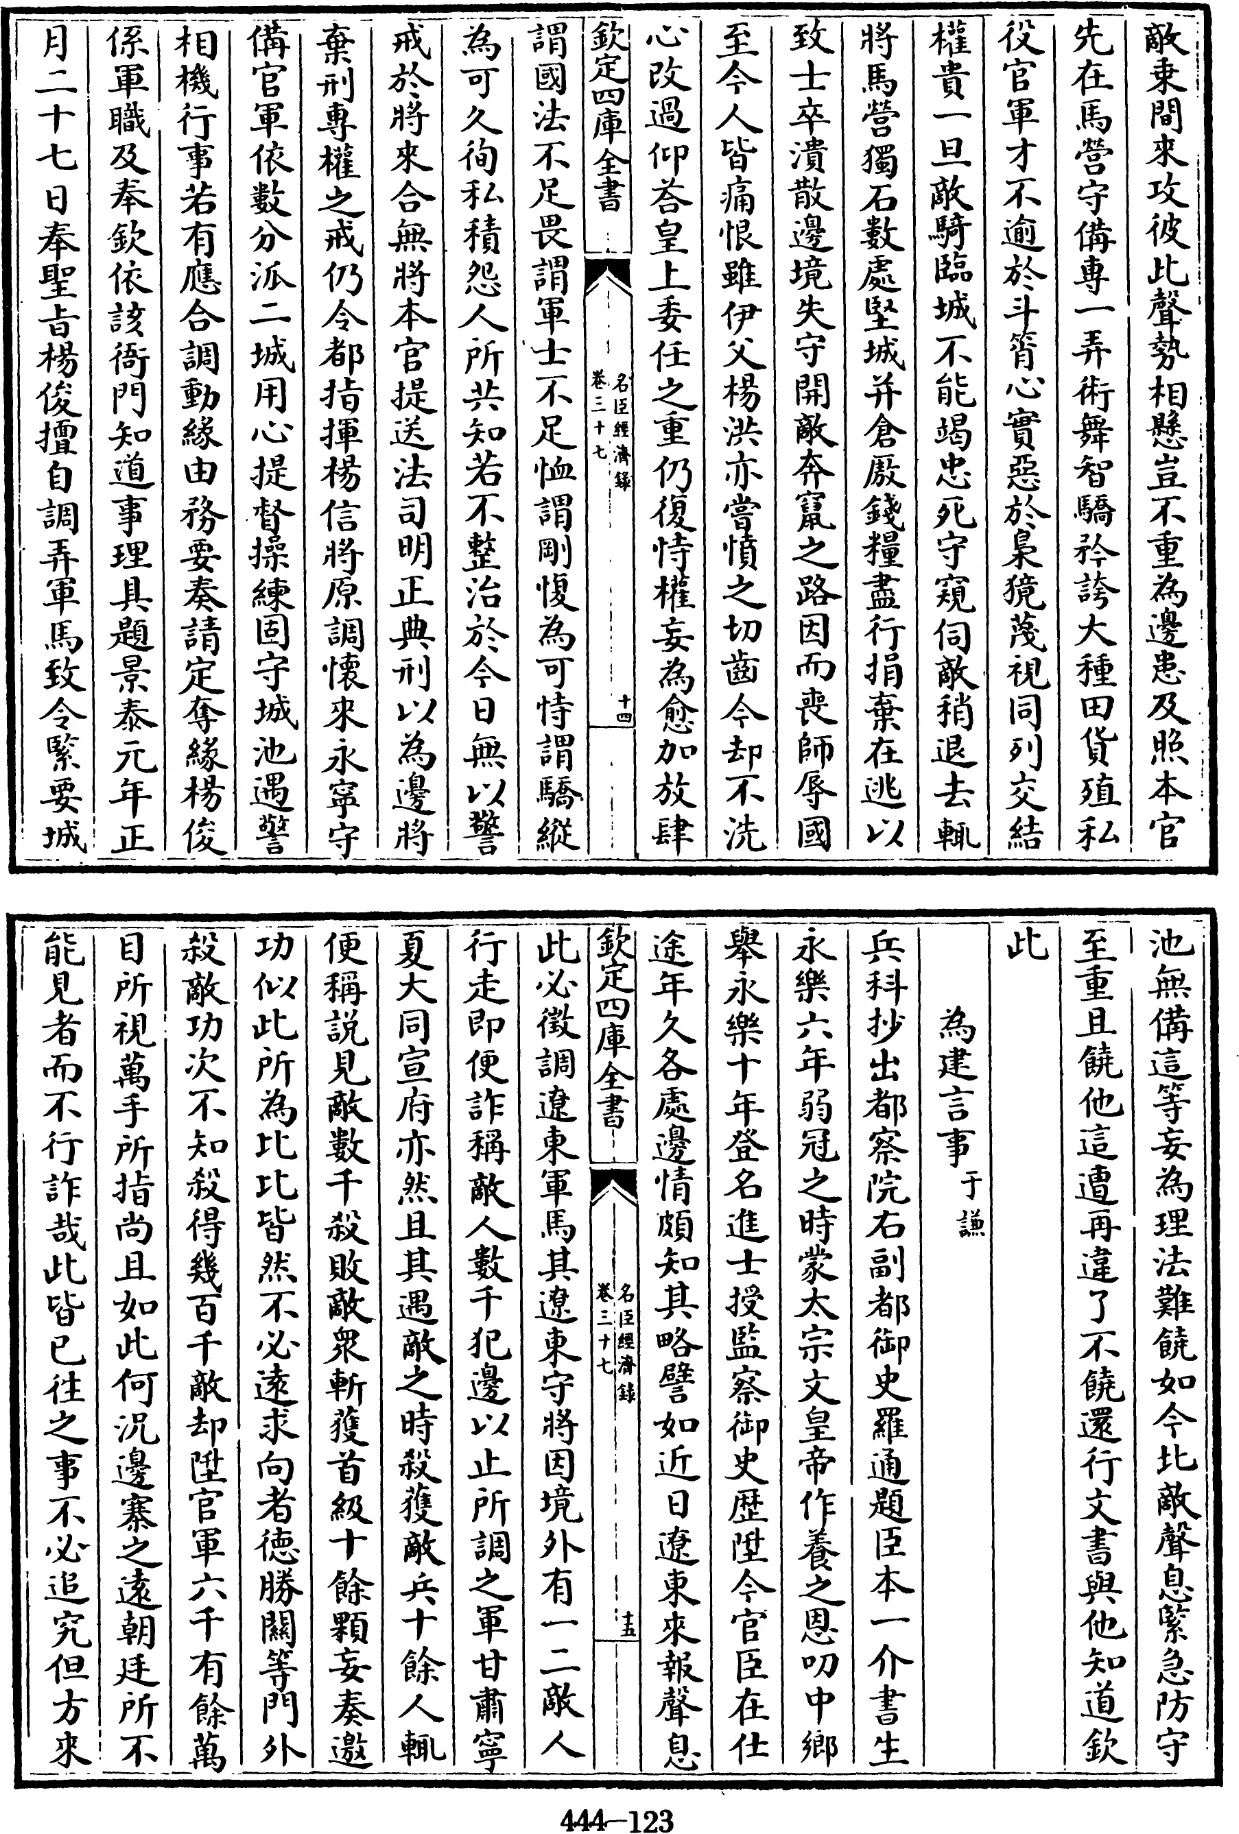 敵乗間來攻彼此聲勢相懸豈不重為邊患及照本官
先在馬營守備專一弄術舞智驕矜誇大種田貨殖私
役官軍才不逾於斗筲心實惡於梟獍蔑視同列交結
權貴一旦敵騎臨城不能竭忠死守窺伺敵稍退去輒
將馬營獨石數處堅城并倉厫錢糧盡行捐棄在逃以
致士卒潰散邊境失守開敵奔竄之路因而喪師辱國
至今人皆痛恨雖伊父楊洪亦嘗憤之切齒今却不洗
心改過仰荅皇上委任之重仍復恃權妄為愈加放肆
欽定四庫全書
名臣經濟錄
卷三十七
十四
謂國法不足畏謂軍士不足恤謂剛愎為可恃謂驕縱
為可久徇私積怨人所共知若不整治於今日無以警
戒於將來合無將本官提送法司明正典刑以為邊將
棄刑專權之戒仍令都指揮楊信將原調懷來永寧守
備官軍依數分派二城用心提督操練固守城池遇警
相機行事若有應合調動緣由務要奏請定奪緣楊俊
係軍職及奉欽依該衙門知道事理具題景泰元年正
月二十七日奉聖旨楊俊擅自調弄軍馬致令緊要城
池無備這等妄為理法難饒如今北敵聲息緊急防守
至重且饒他這遭再違了不饒還行文書與他知道欽
此
為建言事于謙
兵科抄出都察院右副都御史羅通題臣本一介書生
永樂六年弱冠之時蒙太宗文皇帝作養之恩叨中鄉
舉永樂十年登名進士授監察御史歴陞今官臣在仕
途年久各處邊情頗知其略譬如近日遼東來報聲息
欽定四庫全書
名臣經濟錄
卷三十七
十五
此必徵調遼東軍馬其遼東守將因境外有一二敵人
行走即便詐稱敵人數千犯邊以止所調之軍甘肅寧
夏大同宣府亦然且其遇敵之時殺獲敵兵十餘人輒
便稱說見敵數千殺敗敵衆斬獲首級十餘顆妄奏邀
功似此所為比比皆然不必遠求向者德勝關等門外
殺敵功次不知殺得幾百千敵却陞官軍六千有餘萬
目所視萬手所指尚且如此何況邊寨之遠朝廷所不
能見者而不行詐哉此皆已徃之事不必追究但方來
444-123